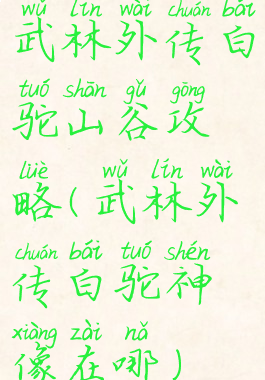 wǔ lín wài chuán bái
武林外传白
tuó shān gǔ gōng
驼山谷攻
lüè wǔ lín wài
略(武林外
chuán bái tuó shén
传白驼神
xiàng zài nǎ
像在哪)